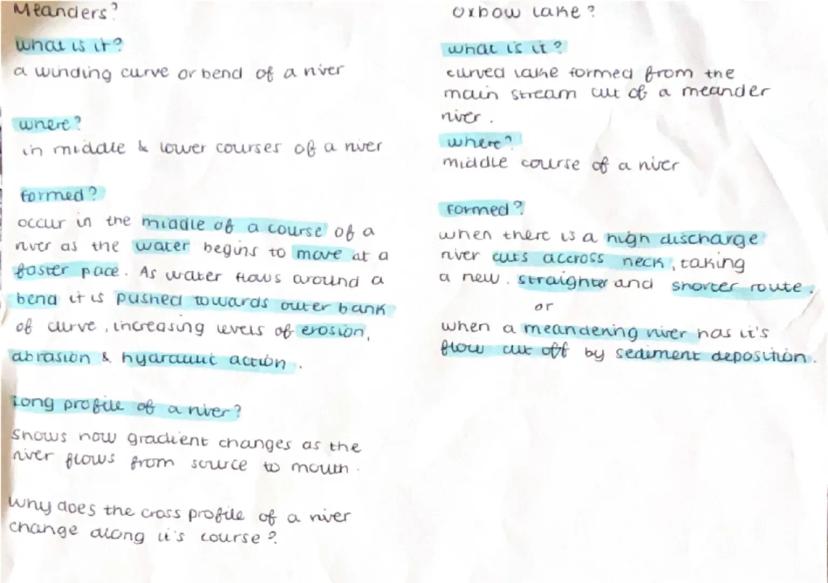 Meanders?
what is it?
a winding curve or bend of a river
where?
in middle & lower courses of a river
formed?
occur in the middle of a course of a
river as the water begins to move at a
faster pace. As water flows around a
bend it is pushed towards outer bank
of curve, increasing levels of erosion,
abrasion & hydraulic action.
Long profile of a river?
shows how gradient changes as the
river flows from source to mouth.
Why does the cross profile of a river
change along it's course?
Oxbow Lake?
what is it?
curved lake formed from the
main stream cut of a meander
river.
where?
middle course of a river
Formed?
when there is a high discharge
river cuts accross neck, taking
a new, straighter and shorter route.
or
when a meandering river has it's
flow cut off by sediment deposition.